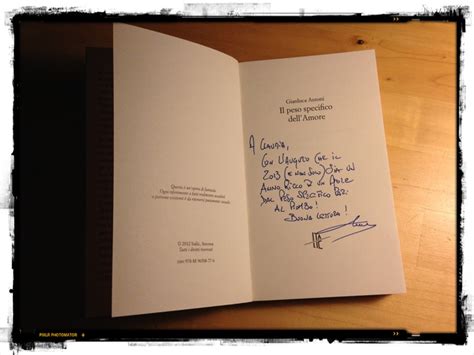 Questa è un'opera di fantasia.
Ogni riferimento a fatti realmente accaduti
o persone esistenti è da ritenersi puramente casuale.
© 2012 Italic, Ancona
Tutti i diritti riservati
ISBN 978 88
Gianluca Antoni
Il peso specifico
dell'Amore
A CLAUDIA,
CON L'AUGURIO CHE IL
2013 (E NON SOLO) SIA UN
ANNO RICCO DI UN AMORE
DAL PESO SPECIFICO PARI
AL PIOMBO!
BUONA LETTURA!
PIXLR PHOTOMATOR